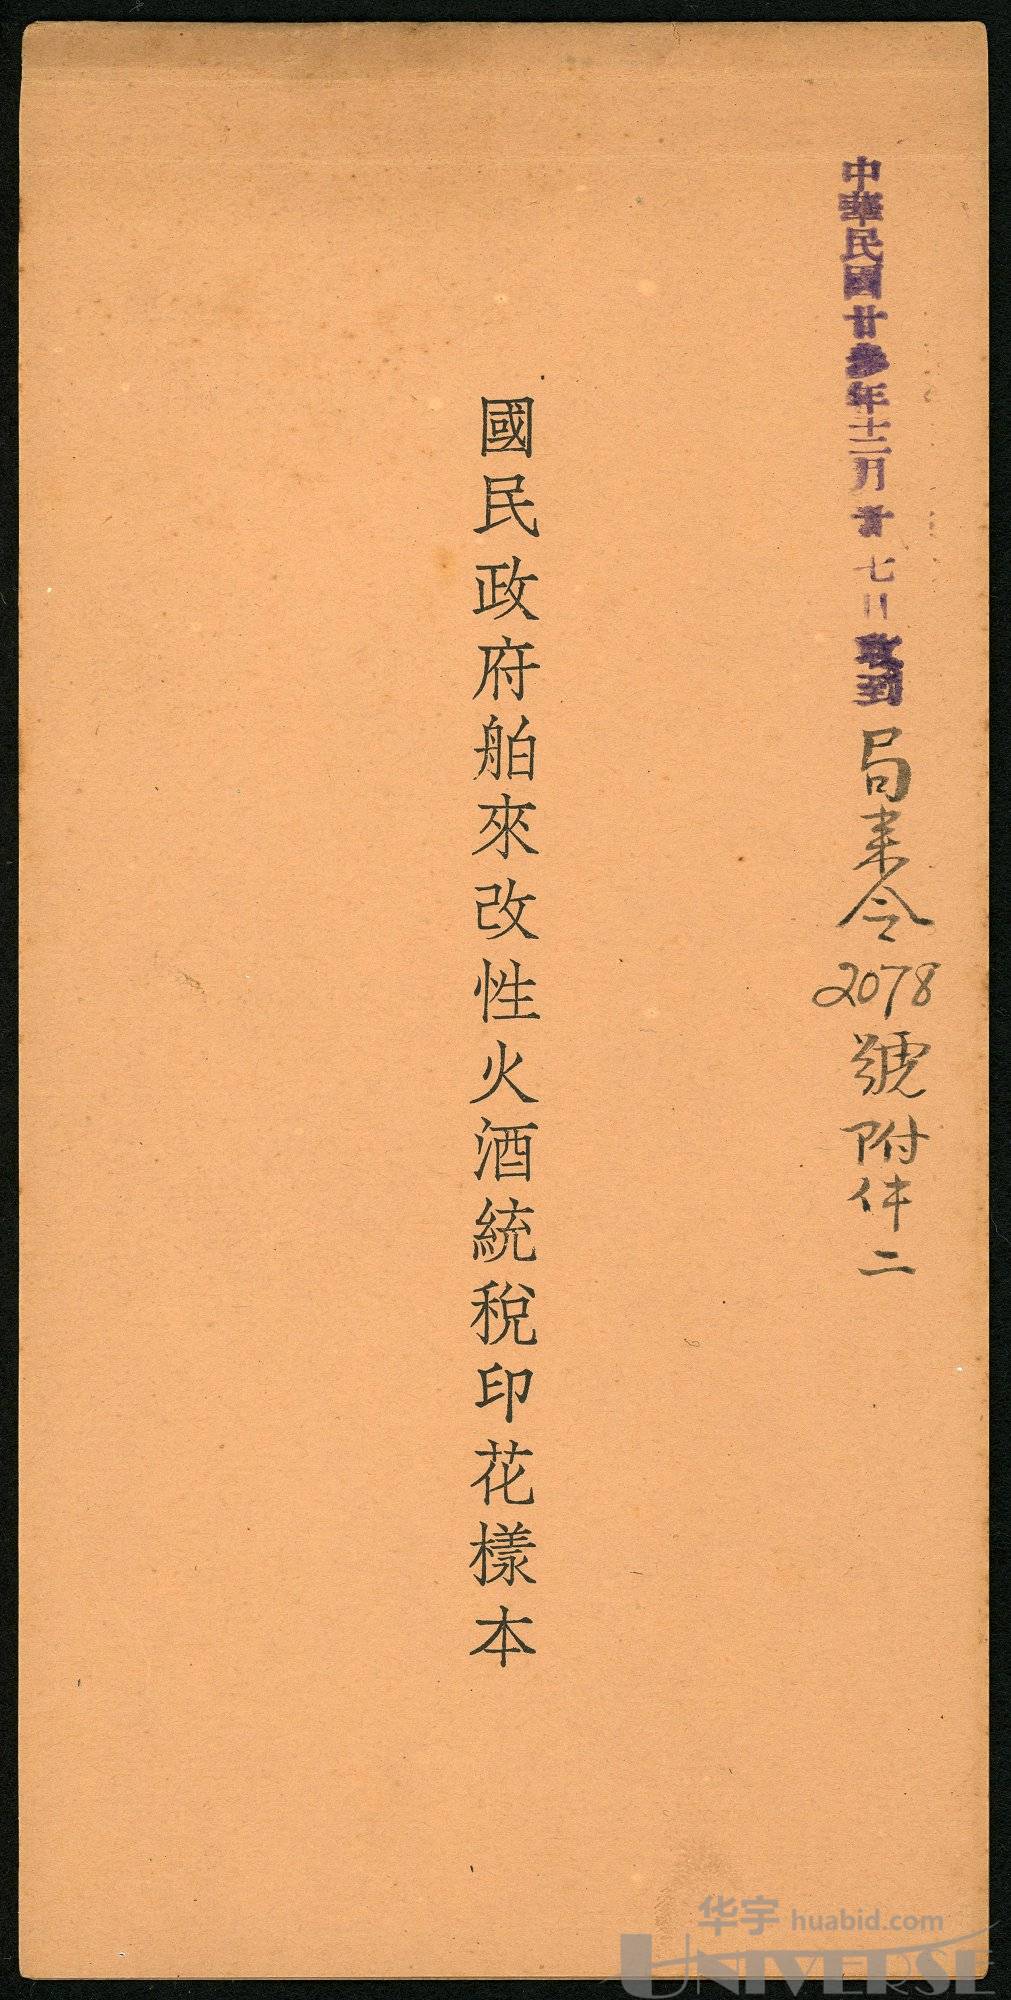 中華民國廿叁年十二月廿七日收到
局來令2078號附件二
國民政府舶來改性火酒統稅印花樣本
华宇 huabid.com
UNIVERSE